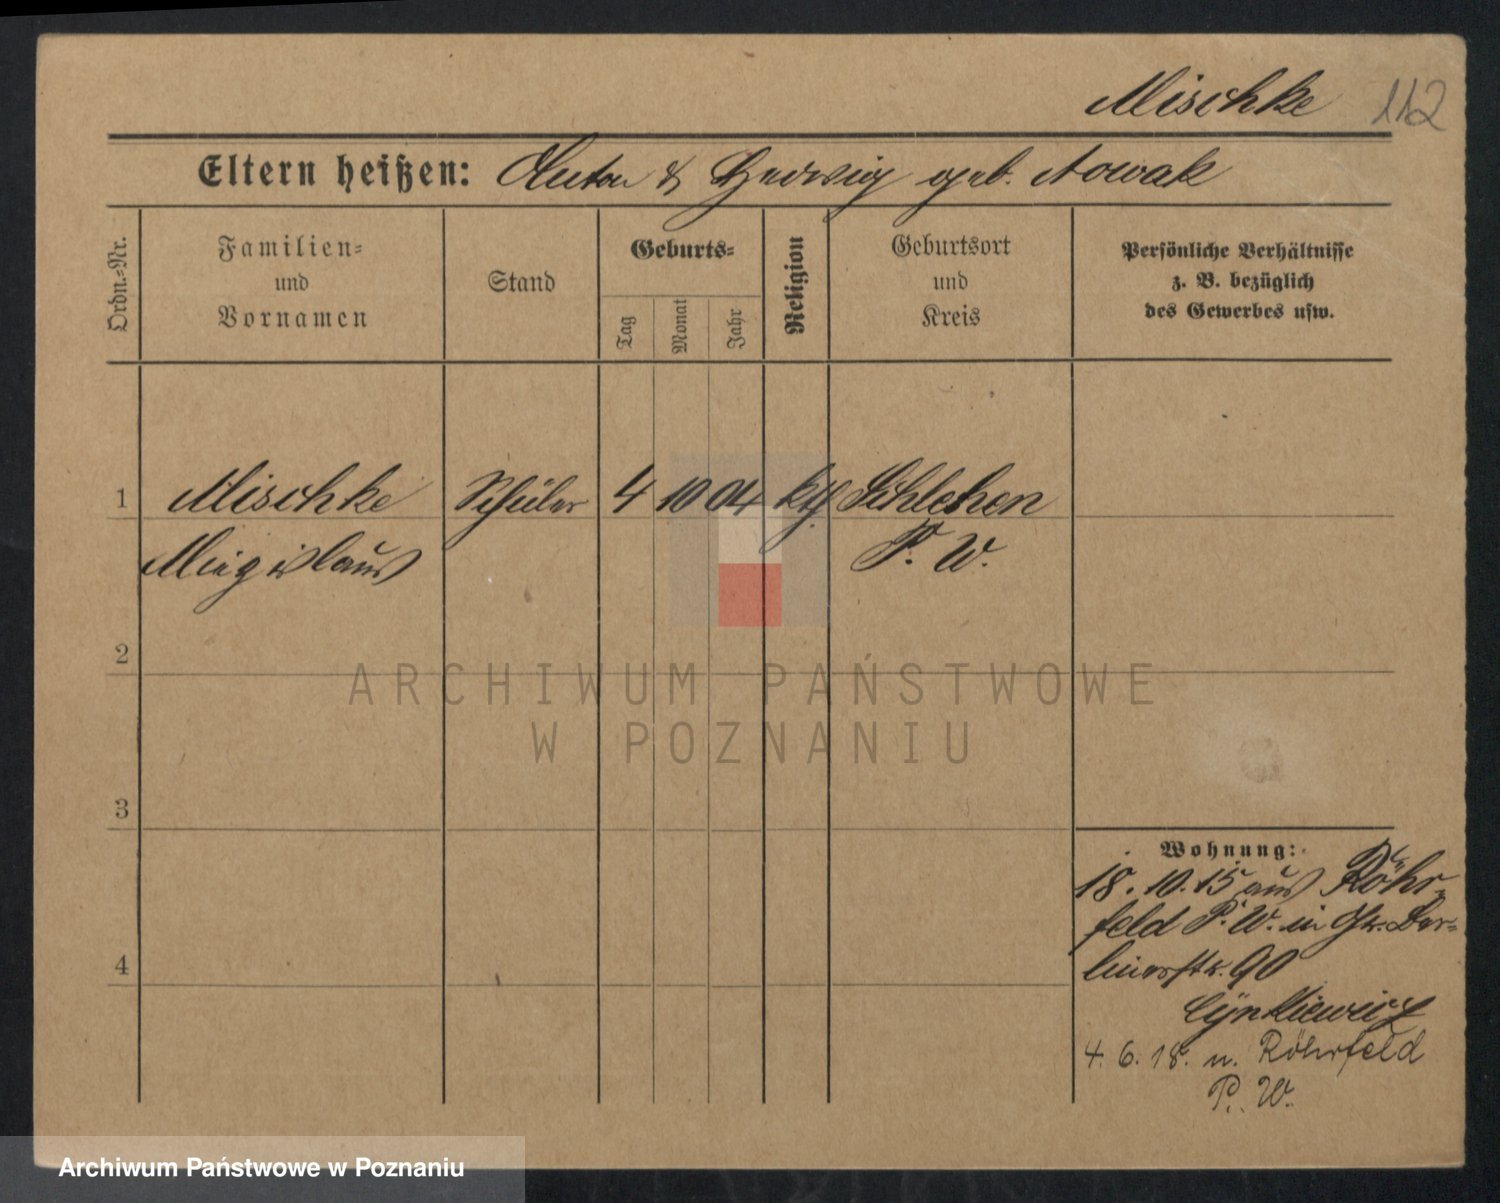 Mischke 112
Eltern heißen: Anton & Hedwig geb. Nowak
Ordn.=Nr.
Familien=
und
Vornamen
Stand
Geburts=
Tag
Monat
Jahr
Religion
Geburtsort
und
Kreis
Persönliche Verhältnisse
z. B. bezüglich
des Gewerbes usw.
1 Mischke Schüler 4 10 04 kth Schlehen
P. W.
2
3
4
Wohnung:
18. 10. 15 aus Röhr=
feld P. W. in Gr. Ber=
linerstr. 90
4. 6. 18. n. Röhrfeld
P. W.
ARCHIWUM PAŃSTWOWE
W POZNANIU
Archiwum Państwowe w Poznaniu